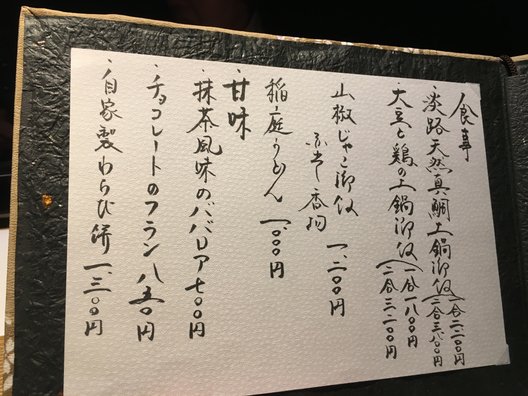 食事
・淡路天然真鯛土鍋御飯(一合二、二〇〇円
二合三、八〇〇円
・大豆と鶏の土鍋御飯(一合一、八〇〇円
二合三、二〇〇円
山椒じゃこ御飯
赤出し香物 一、二〇〇円
稲庭うどん 一、〇〇〇円
甘味
・抹茶風味のババロア七〇〇円
・チョコレートのフラン八五〇円
・自家製わらび餅一、三〇〇円